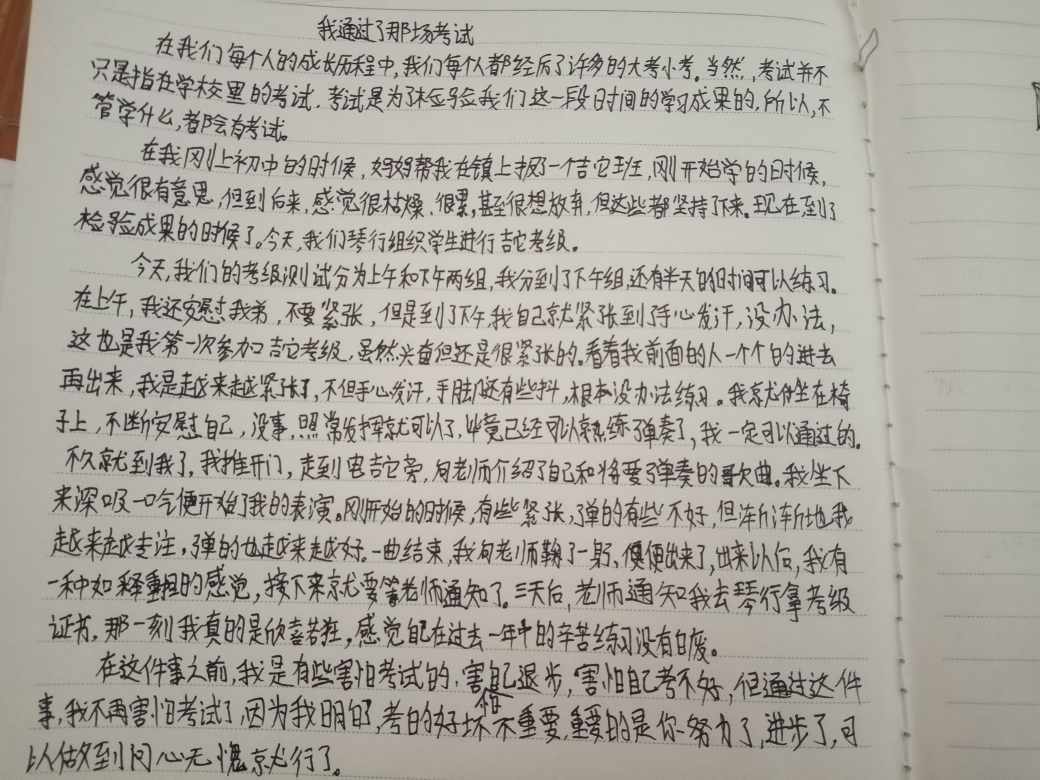 我通过了那场考试
在我们每个人的成长历程中,我们每个人都经历了许多的大考小考。当然,考试并不
只是指在学校里的考试,考试是为了检验我们这一段时间的学习成果的,所以,不
管学什么,都会有考试。
在我刚上初中的时候,妈妈帮我在镇上报了一个吉它班,刚开始学的时候,
感觉很有意思,但到后来,感觉很枯燥、很累,甚至很想放弃,但这些都坚持下来。现在到了
检验成果的时候了。今天,我们琴行组织学生进行吉它考级。
今天,我们的考级测试分为上午和下午两组,我分到了下午组,还有半天的时间可以练习。
在上午,我还安慰我弟,不要紧张,但是到了下午,我自己就紧张到了手心发汗,没办法,
这也是我第一次参加吉它考级,虽然兴奋但还是很紧张的。看着我前面的人一个个的进去
再出来,我是越来越紧张了,不但手心发汗,手脚还有些抖,根本没办法练习。我就坐在椅
子上,不断安慰自己,没事,照常发挥就可以了,毕竟已经可以熟练弹奏了,我一定可以通过的。
不久就到我了,我推开门,走到电吉它旁,向老师介绍了自己和将要弹奏的歌曲。我坐下
来深吸一口气便开始了我的表演。刚开始的时候,有些紧张,弹的有些不好,但渐渐地我
越来越专注,弹的也越来越好。一曲结束,我向老师鞠了一躬,便出来了,出来以后,我有
一种如释重担的感觉,接下来就要等老师通知了。三天后,老师通知我去琴行拿考级
证书,那一刻我真的是欣喜若狂,感觉自己在过去一年中的辛苦练习没有白废。
在这件事之前,我是有些害怕考试的,害怕自己退步,害怕自己考不好,但通过这件
事,我不再害怕考试了,因为我明白了,考的好坏不重要,重要的是你努力了,进步了,可
以做到问心无愧就行了。